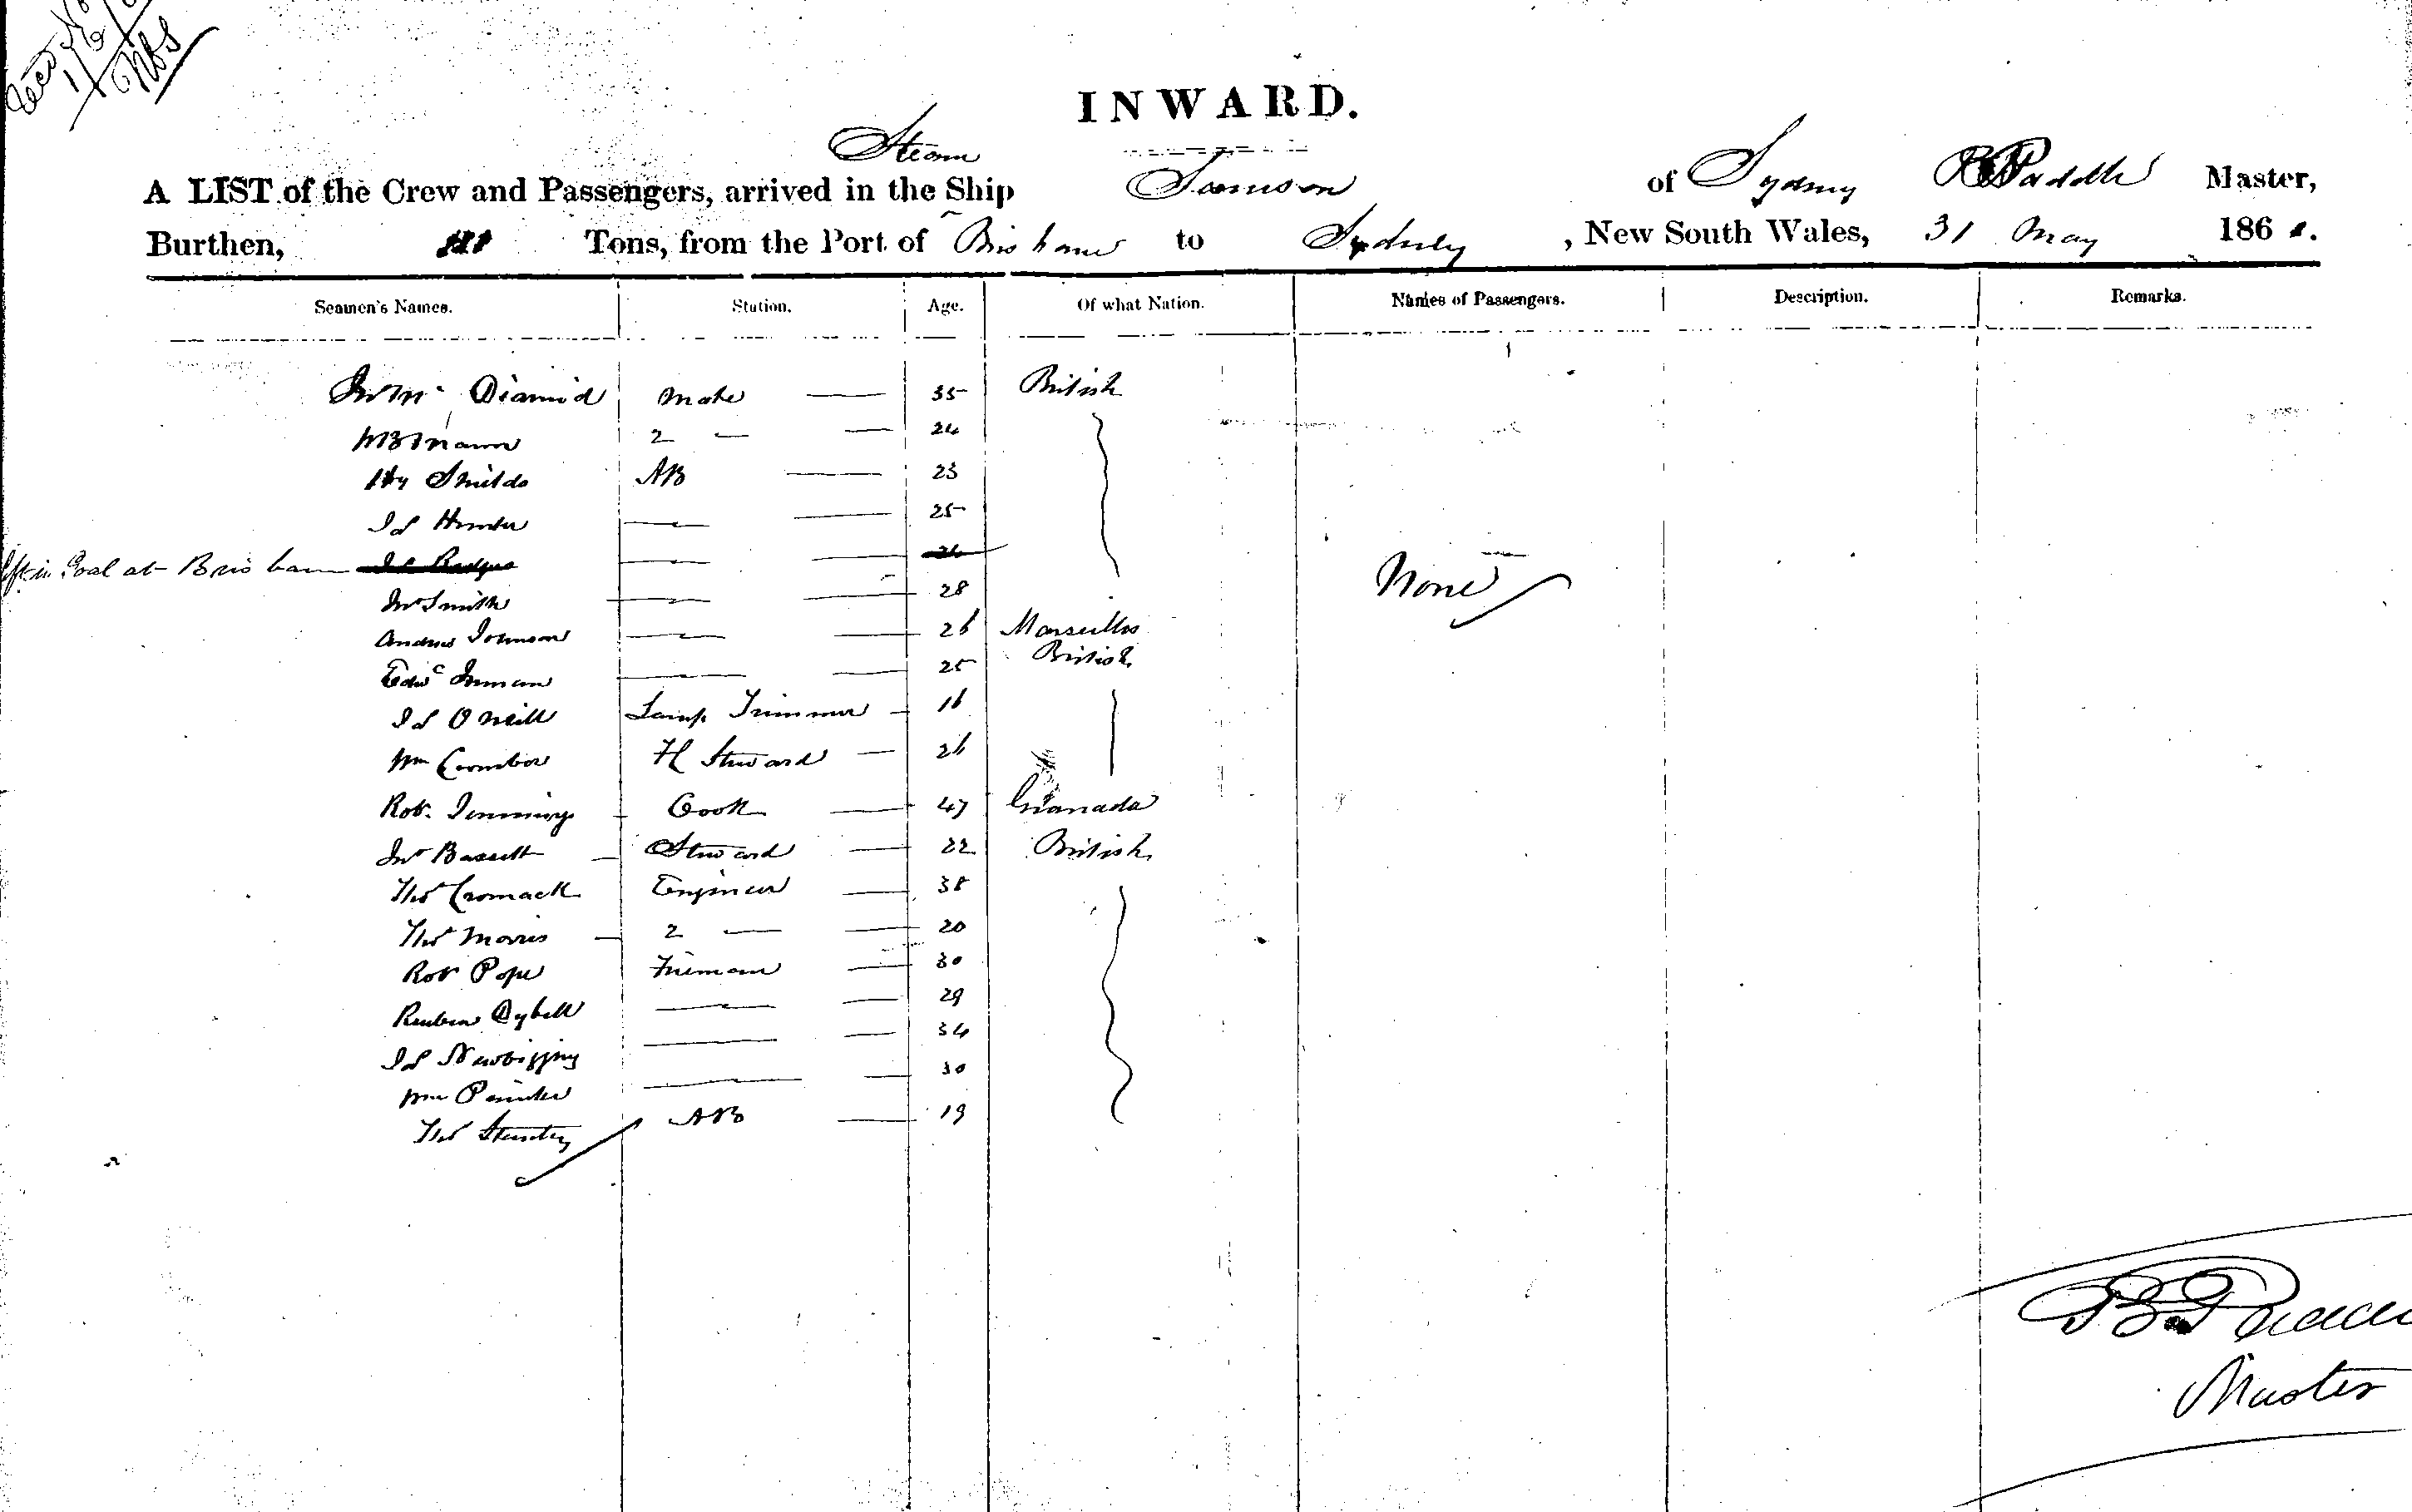 INWARD.
Steam
A LIST of the Crew and Passengers, arrived in the Ship Samson of Sydney B Paddle Master,
Burthen, Tons, from the Port of Brisbane to Sydney, New South Wales, 31 May 186
Seamen's Names. Station. Age. Of what Nation. Names of Passengers. Description. Remarks.
Jno Mc Diarmid Mate 35 British
W B Mann 2 — 24
Hy Shields AB 23
Js Hunter — 25
in Goal at Brisbane Js — 26
Jno Smith — 28 None
Andrew Johnson — 26 Marseilles
Edwd Inman — 25 British
Js O Neill Lamp Trimmer 16
Wm Coomber H Steward 26
Robt. Jennings Cook 47 Granada
Jno Bassett Steward 22 British
Thos Cromack Engineer 38
Thos Morris 2 — 20
Robt Pope Fireman 30
Reuben Dybell — 29
Js Newbigging — 34
Wm Painter — 30
Thos AB 19
Master